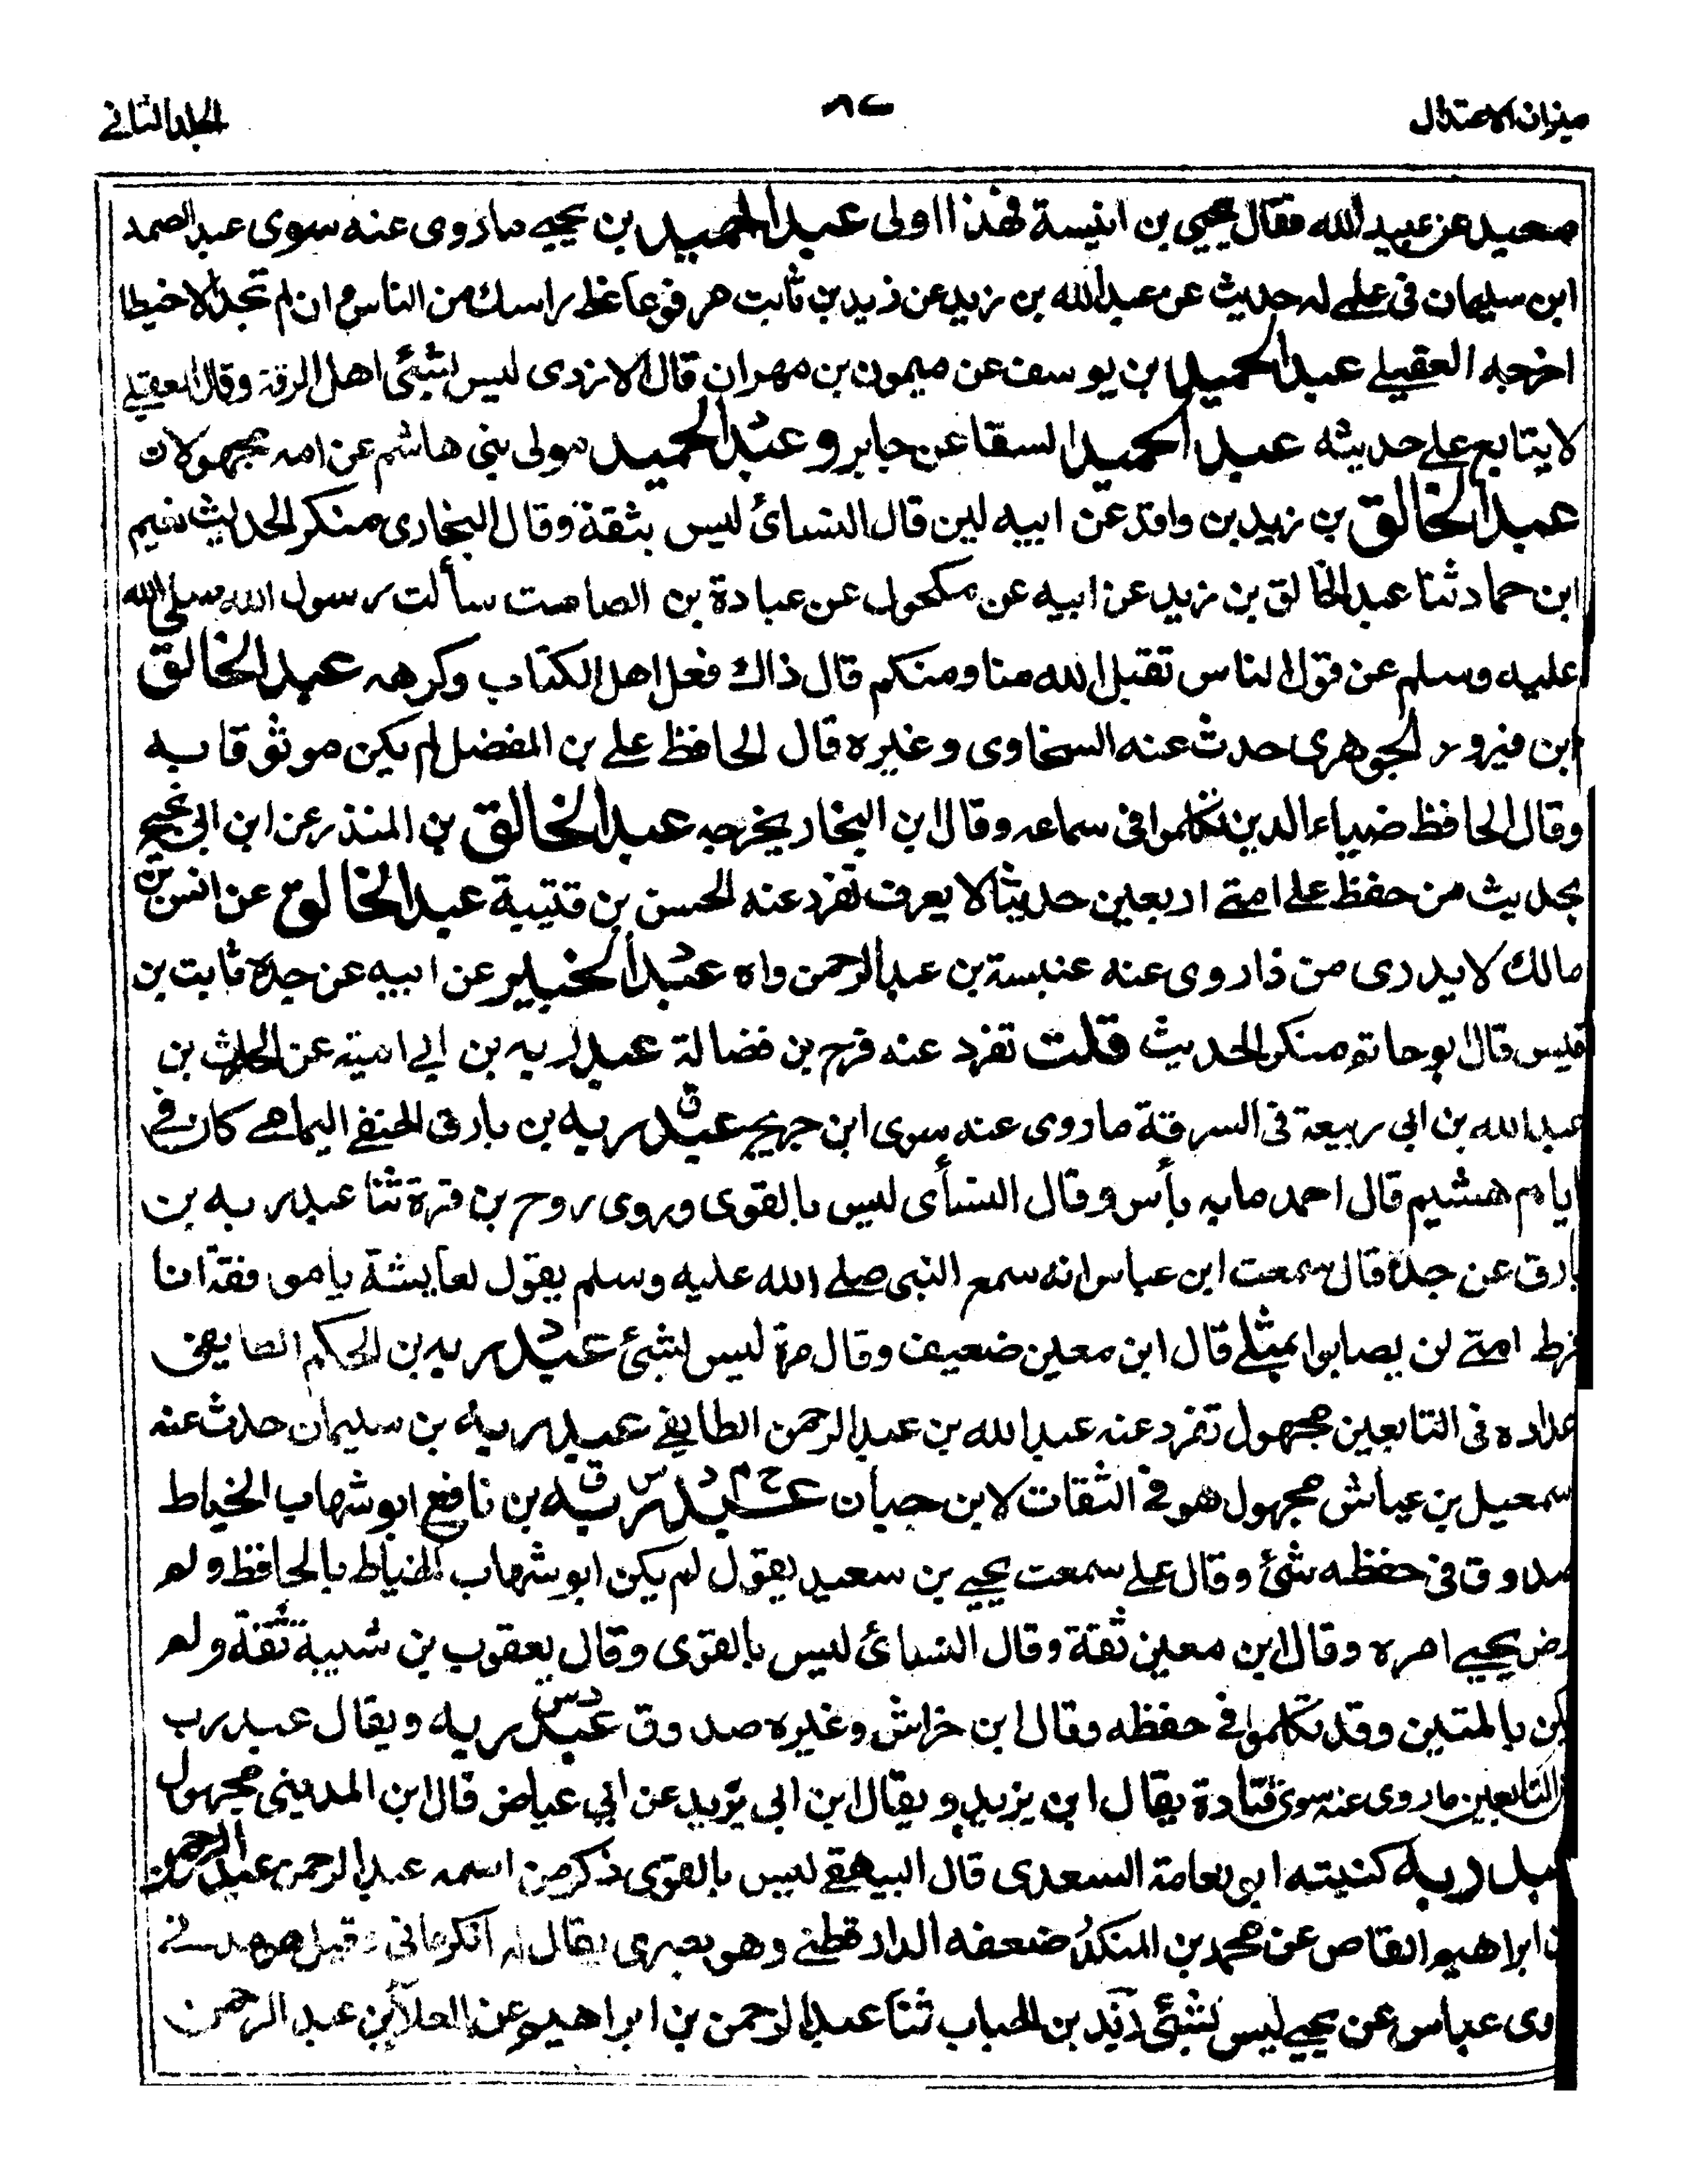 ميزان الاعتدال
٨٢
الجلد الثاني
سعيد عن عبيد الله فقال يحيى بن انيسة فهذا اولى عبد الحميد بن يحيى ما روى عنه سوى عبد الصمد
ابن سليمان فى على له حديث عن عبد الله بن زيد عن زيد بن ثابت مرفوعا غط راسك من الناس وان لم تجد الا خيطا
اخرجه العقيلي عبد الحميد بن يوسف عن ميمون بن مهران قال الازدى ليس بشئ اهل الرقة وقال العقيلي
لا يتابع على حديثه عبد الحميد السقا عن جابر و عبد الحميد مولى بني هاشم عن امه مجهولان
عبد الخالق بن زيد بن واقد عن ابيه لين قال النسائ ليس بثقة وقال البخارى منكر الحديث نعيم
ابن حماد ثنا عبد الخالق بن زيد عن ابيه عن مكحول عن عبادة بن الصامت سألت رسول الله صلى الله
عليه وسلم عن قول الناس تقبل الله منا ومنكم قال ذاك فعل اهل الكتاب وكرهه عبد الخالق
ابن فيروز الجوهرى حدث عنه السخاوى وغيره قال الحافظ على بن المفضل لم يكن موثوقا به
وقال الحافظ ضياء الدين تكلموا فى سماعه وقال ابن النجار يخرجه عبد الخالق بن المنذر عن ابن ابى نجيح
بحديث من حفظ على امتى اربعين حديثا لا يعرف تفرد عنه الحسن بن قتيبة عبد الخالق عن انس بن
مالك لا يدرى من ذا روى عنه عنبسة بن عبد الرحمن واه عبد الخبير عن ابيه عن جده ثابت بن
قيس قال ابو حاتم منكر الحديث قلت تفرد عنه فرج بن فضالة عبد ربه بن ابي امية عن الحارث بن
عبد الله بن ابى ربيعة فى السرقة ما روى عنه سوى ابن جريج عبد ربه بن بارق الحنفي اليمامي كان في
ايام هشيم قال احمد ما به بأس وقال النسأى ليس بالقوى وروى روح بن قرة ثنا عبد ربه بن
بارق عن جده قال سمعت ابن عباس انه سمع النبى صلى الله عليه وسلم يقول لعايشة يا موفقة انا
فرط امتى لن يصابوا بمثلى قال ابن معين ضعيف وقال مرة ليس بشئ عبد ربه بن الحكم الطايفى
عداده فى التابعين مجهول تفرد عنه عبد الله بن عبد الرحمن الطايفي عبد ربه بن سليمان حدث عنه
سمعيل بن عياش مجهول هو في الثقات لابن حبان خ م د س ق عبد ربه بن نافع ابو شهاب الخياط
صدوق فى حفظه شئ وقال على سمعت يحيى بن سعيد يقول لم يكن ابو شهاب الخياط بالحافظ ولم
رض يحيى امره وقال ابن معين ثقة وقال النسائ ليس بالقوى وقال يعقوب بن شيبة ثقة ولم
كن بالمتين وقد تكلموا فى حفظه وقال ابن خراش وغيره صدوق د س عبد ربه ويقال عبد رب
التابعين ما روى عنه سوى قتادة يقال ابن يزيد ويقال ابن ابى يزيد عن ابي عياض قال ابن المدينى مجهول
عبد ربه كنيته ابو نعامة السعدى قال البيهقي ليس بالقوى ذكر من اسمه عبد الرحمن عبد الرحمن
بن ابراهيم القاص عن محمد بن المنكدر ضعفه الدارقطنى وهو بصرى يقال له الكرمانى وقيل هو مدنى
وى عباس عن يحيى ليس بشئ زيد بن الحباب ثنا عبد الرحمن بن ابراهيم عن العلاء بن عبد الرحمن